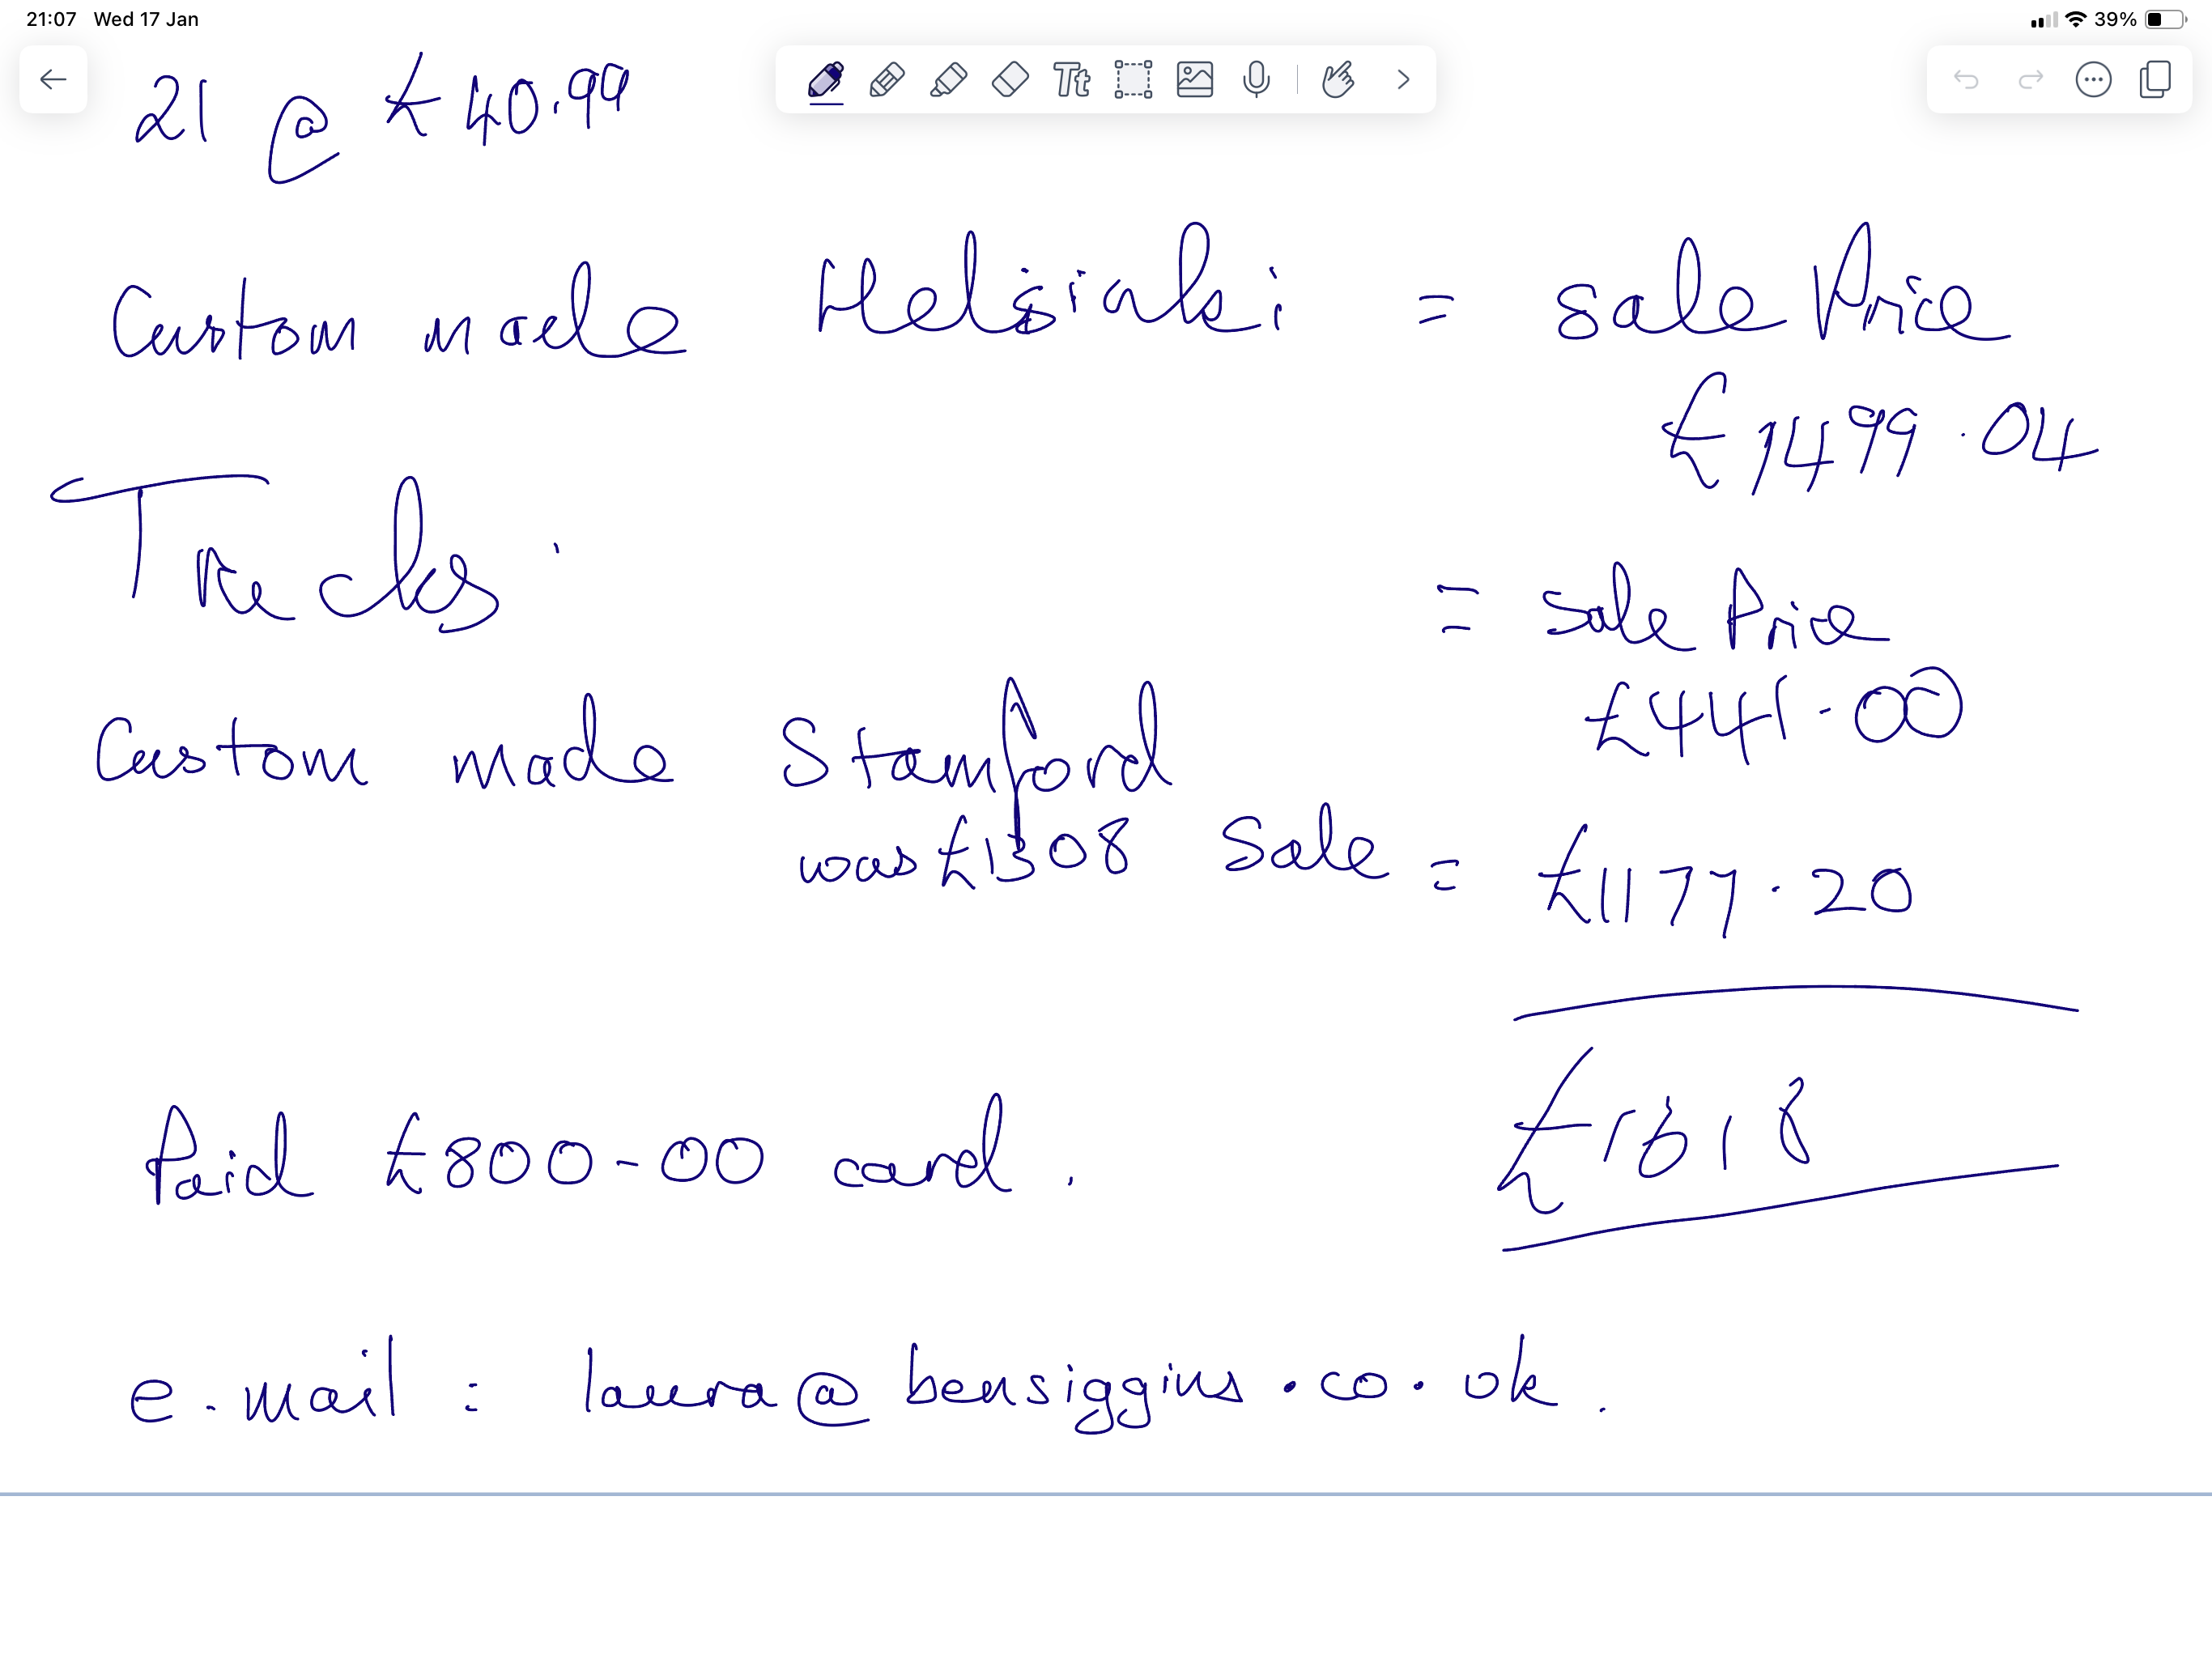 21:07 Wed 17 Jan 39%
Tt
21 @ £40.99
Custom made Helsinki = sale Price
£1499.04
Tracks. = sale Price
£441-00
Custom made Stamford
was £1308 Sale = £1177.20
£1618
Paid £800-00 card.
e.mail : laura@bensiggins.co.uk.